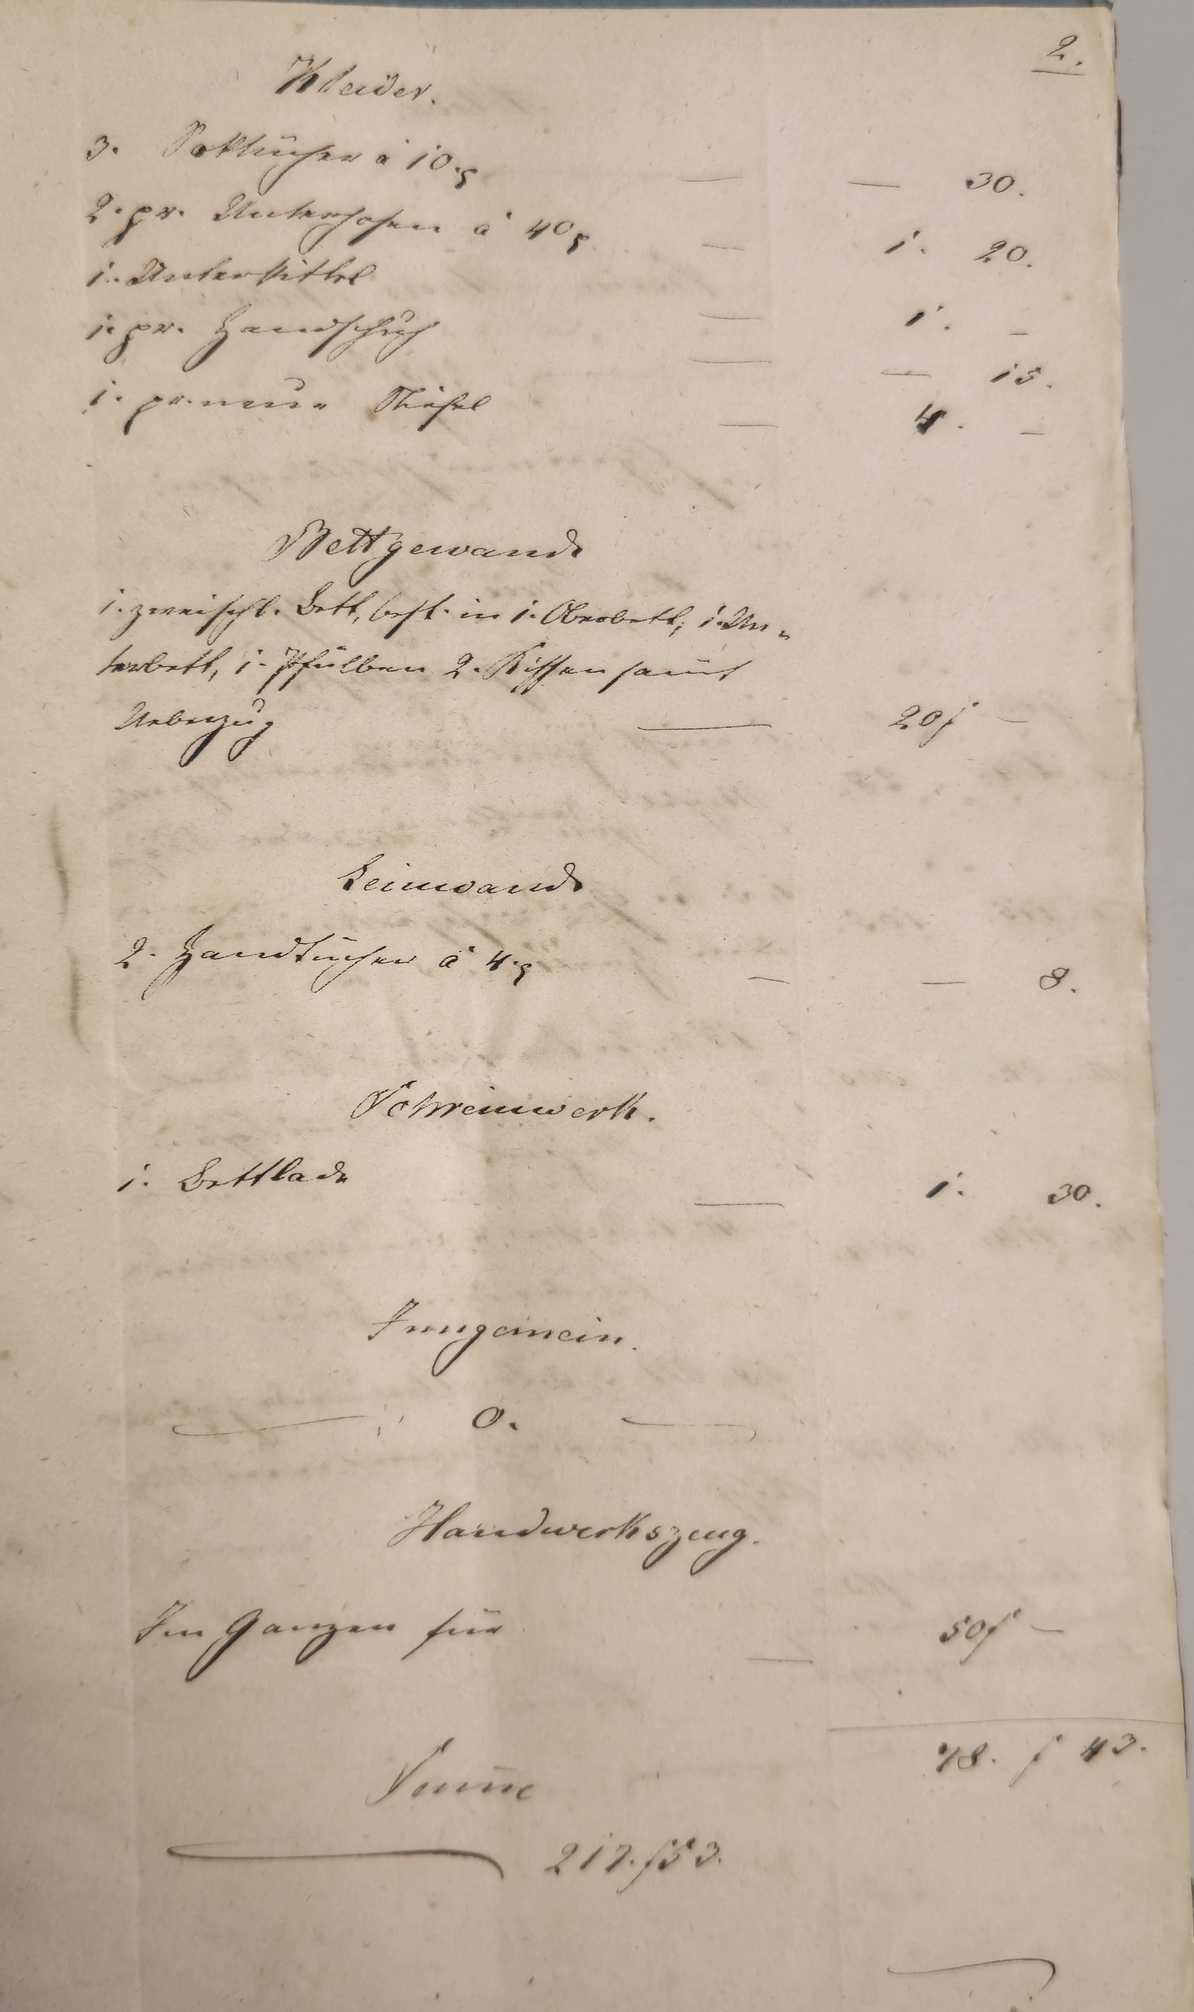 2.
Kleider.
3. Saktücher á 10.x — — 30.
2. pr. Unterhosen á 40x — 1. 20.
1. Unterkittel — 1. —
1. pr. Handschuh — — 15.
1. pr. neue Stiefel — 4. —
Bettgewand
1. zweischl. Bett, best. in 1. Oberbett, 1. Un-
terbett, 1. Pfülben 2. Kissen samt
Ueberzug — 20f —
Leinwand
2. Handtücher á 4.x — — 8.
Schreinwerk.
1. Bettlade — 1. 30.
Inngemein.
— 0. —
Handwerkszeug.
Im Ganzen für — 50f —
78. f 43.
Sum̅e
— 217. f 53.